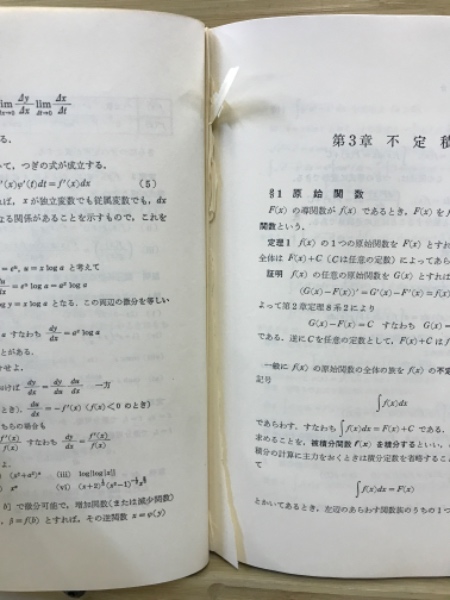 lim Δy/Δx lim Δx/Δt
Δx→0 Δt→0
る.
いて, つぎの式が成立する.
'(x)φ'(t)dt=f'(x)dx (5)
れば, x が独立変数でも従属変数でも,
なる関係があることを示すもので, これを
=eᵘ, u=x log a と考えて
=eᵘ log a=aˣ log a
log y=x log a となる. この両辺の微分を等しい
a すなわち dy/dx=aˣ log a
ことがある.
せよ.
おけば dy/dx=dy/du du/dx. 一方
とき), du/dx=-f'(x) (f(x)<0 のとき)
ちらの場合も
f'(x)/f(x) すなわち dy/dx=f'(x)/f(x)
よ.
(iii) log|log|x||
(vi)
b] で微分可能で, 増加関数(または減少関数)
, β=f(b) とすれば, その逆関数 x=φ(y)
第3章 不 定 積
§1 原 始 関 数
F(x) の導関数が f(x) であるとき, F(x) を f
関数という.
定理1 f(x) の1つの原始関数を F(x) とすれ
全体は F(x)+C (Cは任意の定数) によってあら
証明 f(x) の任意の原始関数を G(x) とすれば
(G(x)-F(x))'=G'(x)-F'(x)=f(x)
よって第2章定理8系2により
G(x)-F(x)=C すなわち G(x)=
である. 逆にCを任意の定数として, F(x)+C は f
一般に f(x) の原始関数の全体の族を f(x) の不定
記号
∫f(x)dx
であらわす. すなわち∫f(x)dx=F(x)+C である.
求めることを, 被積分関数 f(x) を積分するといい,
積分の計算に主力をおくときは積分定数を省略するこ
て
∫f(x)dx=F(x)
とかいてあるとき, 左辺のあらわす関数族のうちの1つ